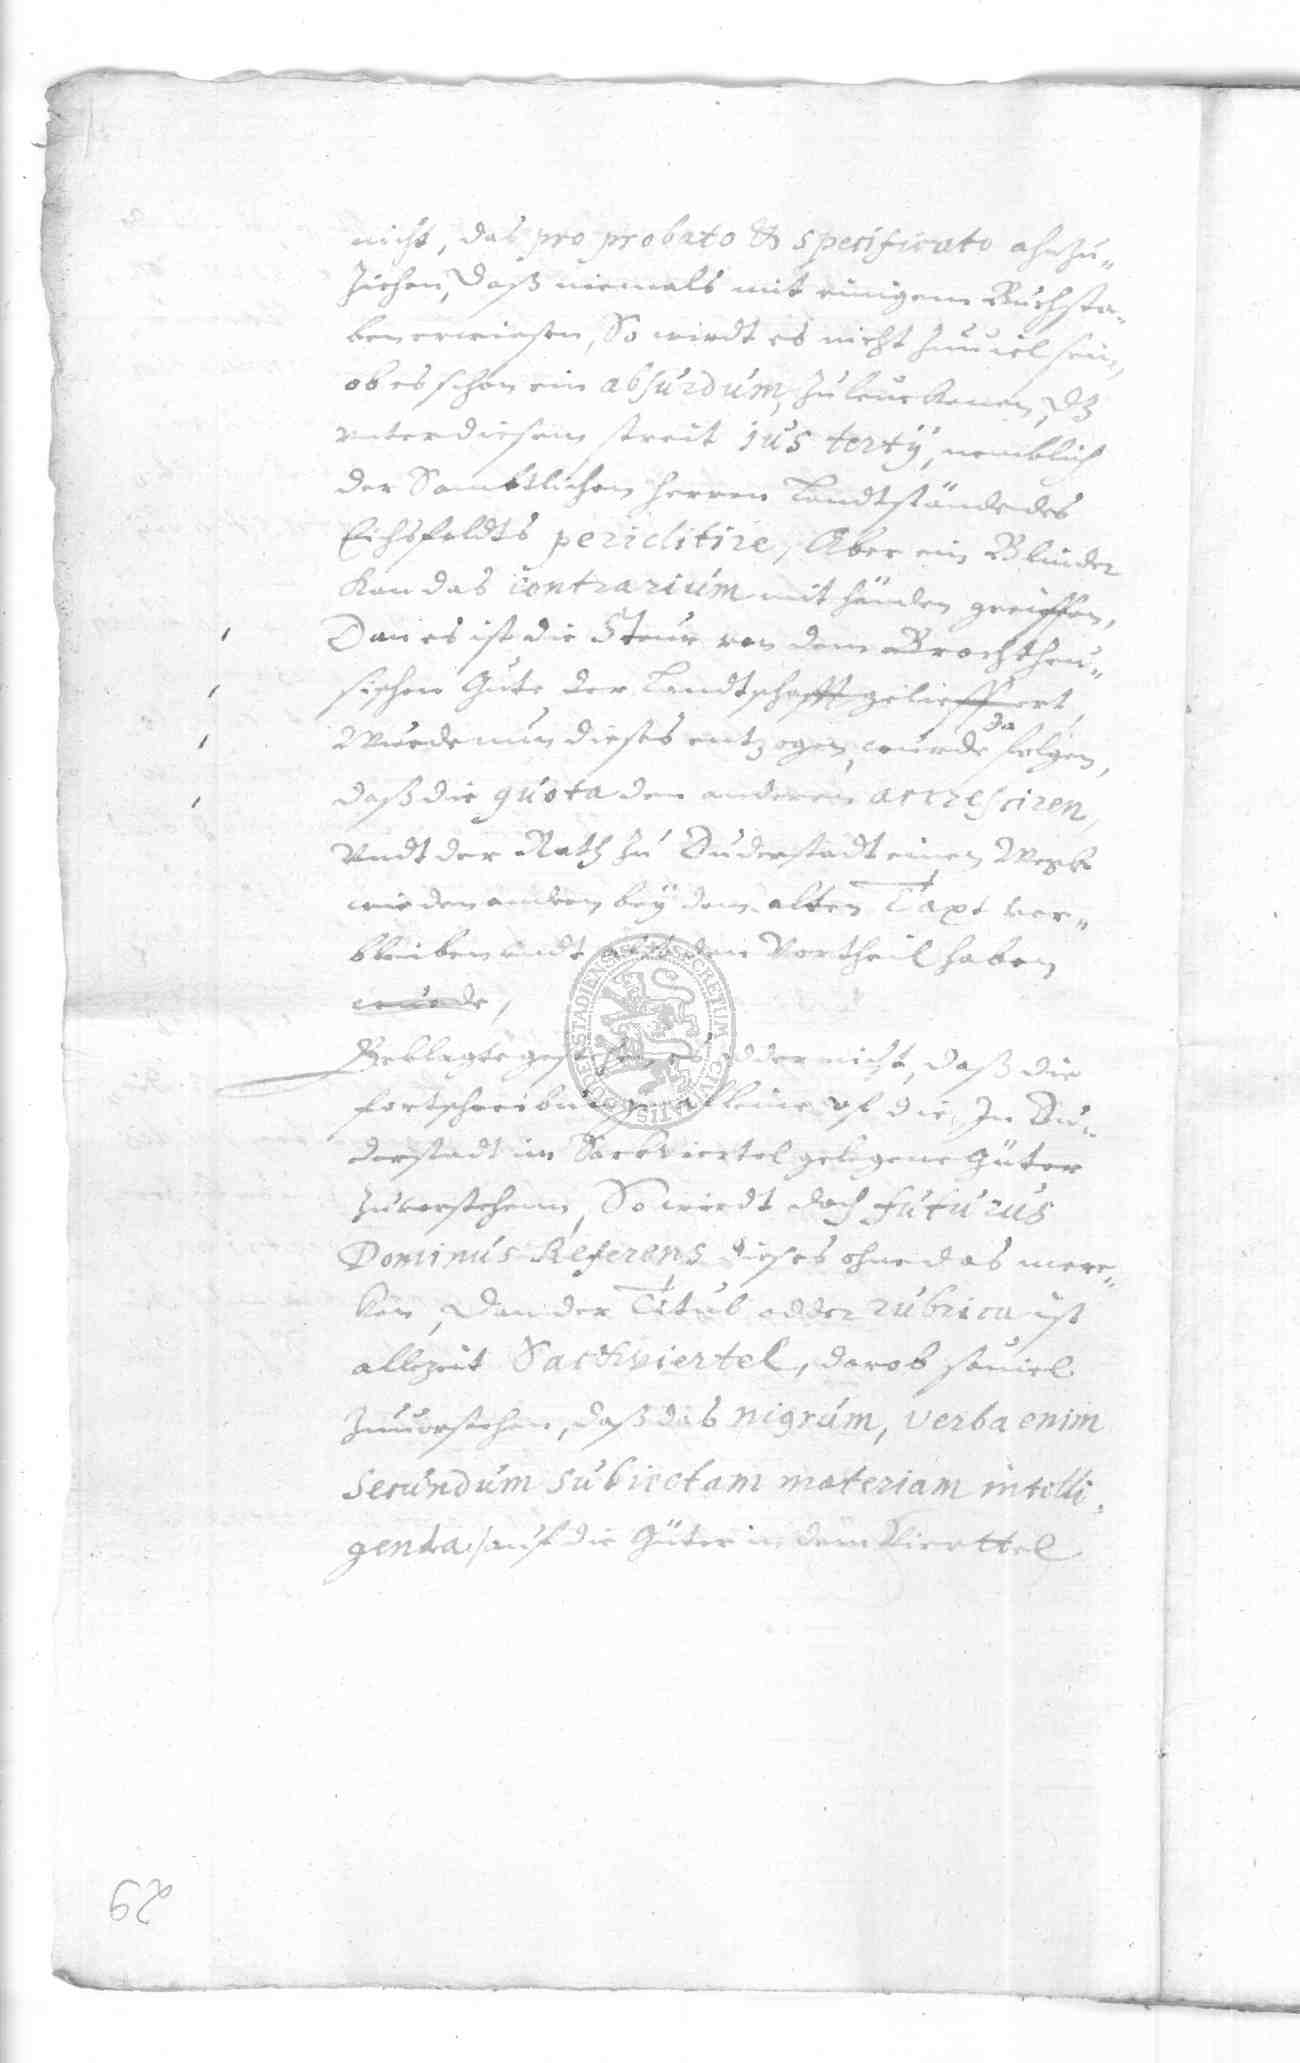 nicht, das pro probato & specificato ahnzu=
ziehen, daß niemals mit einigem Buchsta=
ben erwiesen, So wirdt es nicht zuuiel sein,
ob es schon ein absurdum, zu leuckenen, dz
unter diesem streit ius tertÿ, nemblich
der Sambtlichen Herren Landtstände des
Eichsfeldts periclitire, Aber ein Blinder
Kan das contrarium mit händen greiffen,
Dan es ist die Steur von dem Brochtheu=
sischen Gute der Landtschafft gelieffert,
Wurde nun dieses entzogen, wurde da folgen,
daß die quota den anderen accresciren,
Undt der Rath zu Duderstadt einen Weg
wie den andern beÿ dem alten Taxt ver=
bleiben undt den Vortheil haben
wurde,
Beklagte gestehen es odder nicht, daß die
fortschreibung alleine uf die, In Du=
derstadt im Sackviertel gelegene Güter
zuverstehenn, So wirdt doch futurus
Dominus Referens dieses ohne das merc=
ken, Dan der Titul odder rubrica ist
allezeit Sackviertel, darob souiel
zuuerstehen, daß das nigrum, verba enim
secundum subiectam materiam intelli=
genda, auf die Güter in dem Vierttel
62
SECRETUM CIVITATIS DUDERSTADIENSIS